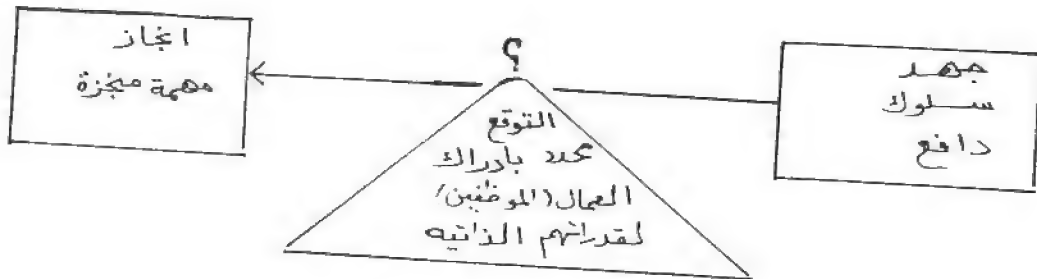 جهد
سلوك
دافع
؟
التوقع
محدد بادراك
العمال (الموظفين)
لقدراتهم الذاتيه
انجاز
مهمة منجزة